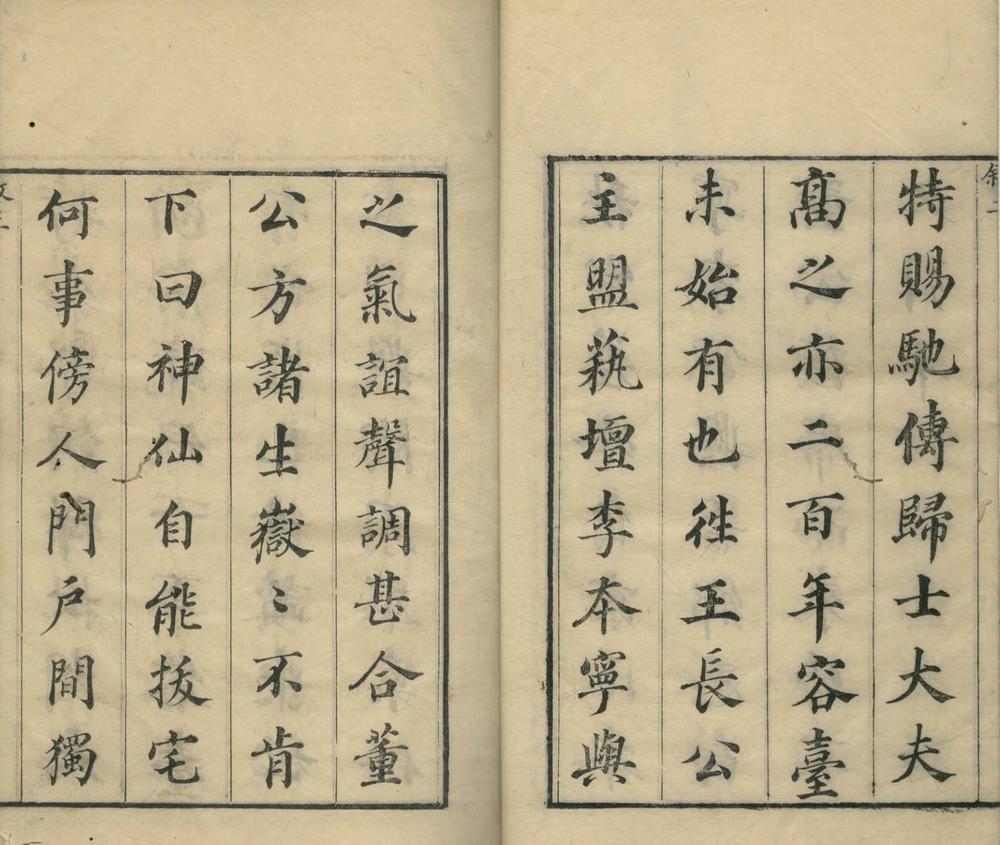 特賜馳傳歸士大夫
高之亦二百年容臺
未始有也徃王長公
主盟蓺壇李本寧與
之氣誼聲調甚合董
公方諸生嶽〻不肯
下曰神仙自能拔宅
何事傍人門戶間獨